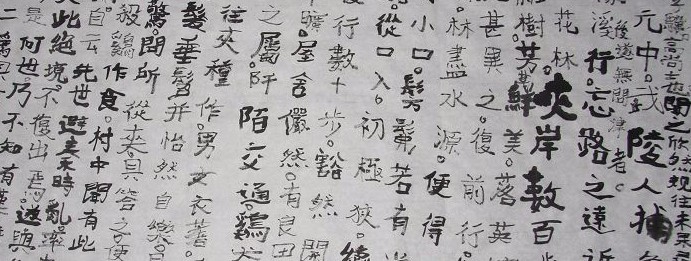 高尚士也闻之欣然规往未果
元中。武陵人捕
後遂無問津者。
溪行。忘路之遠近
花林夾岸數百
樹。芳草鮮美。落英
甚異之。復前行
林盡水源。便得
小口。髣髴若有
從口入。初極狹。
行數十步。豁然開
屋舍儼然。有良田
之屬。阡陌交通。鷄犬
往來種作。男女衣著。
髮垂髫并怡然自樂。
驚。問所從來。具答之。便
鷄作食。村中聞有此
自云先世避秦時亂。率
此絕境。不復出焉。遂與
是何世。乃不知有漢